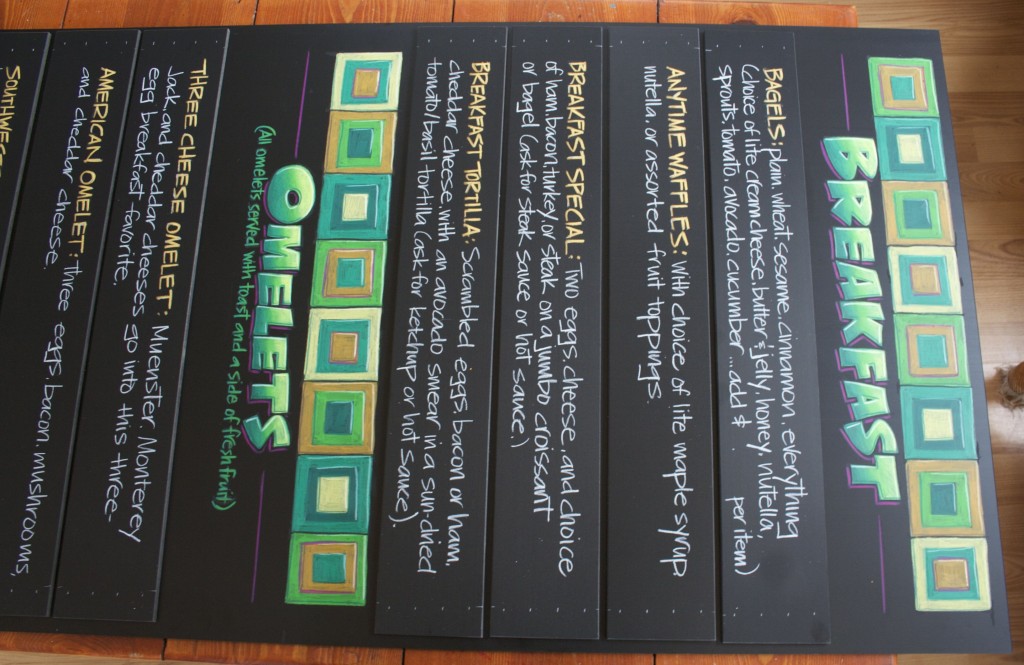 BREAKFAST
BAGELS: plain, wheat, sesame, cinnamon, everything
(choice of lite cream cheese, butter & jelly, honey, nutella,
sprouts, tomato, avocado, cucumber ... add $ per item)
ANYTIME WAFFLES: with choice of lite maple syrup,
nutella, or assorted fruit toppings.
BREAKFAST SPECIAL: Two eggs, cheese, and choice
of ham, bacon, turkey, or steak on a jumbo croissant
or bagel (ask for steak sauce or hot sauce.)
BREAKFAST TORTILLA: Scrambled eggs, bacon or ham,
cheddar cheese with an avocado smear in a sun-dried
tomato/basil tortilla (ask for ketchup or hot sauce).
OMELETS
(All omelets served with toast and a side of fresh fruit)
THREE CHEESE OMELET: Muenster, Monterey
Jack, and cheddar cheeses go into this three-
egg breakfast favorite.
AMERICAN OMELET: Three eggs, bacon, mushrooms,
and cheddar cheese.